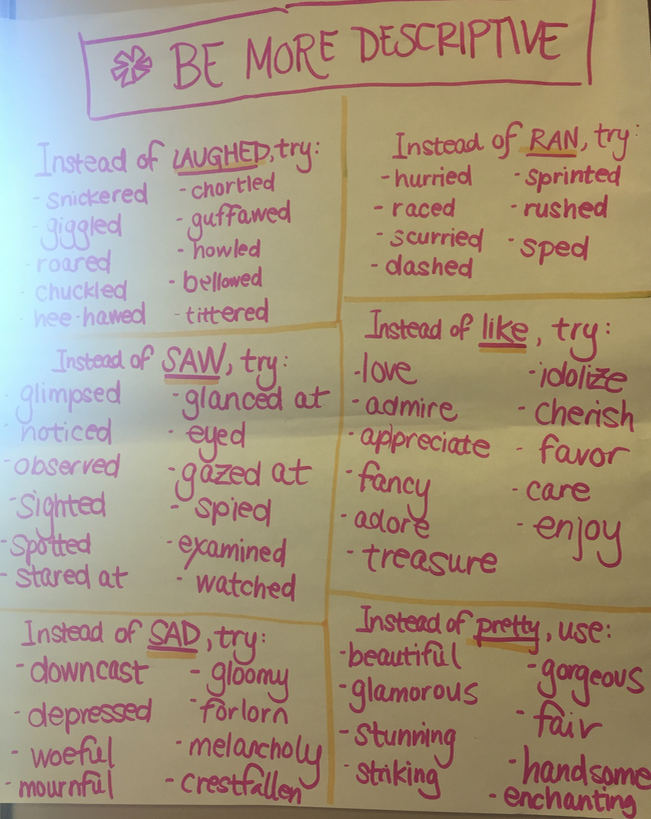 BE MORE DESCRIPTIVE
Instead of LAUGHED, try:
- snickered
- giggled
- roared
chuckled
hee-hawed
- chortled
- guffawed
- howled
- bellowed
- tittered
Instead of RAN, try:
- hurried
- raced
- scurried
- dashed
- sprinted
- rushed
- sped
Instead of SAW, try:
- glimpsed
- noticed
- observed
- Sighted
- Spotted
- stared at
- glanced at
- eyed
- gazed at
- spied
- examined
- watched
Instead of like, try:
- love
- admire
- appreciate
- fancy
- adore
- treasure
- idolize
- cherish
- favor
- care
- enjoy
Instead of SAD, try:
- downcast
- depressed
- woeful
- mournful
- gloomy
- forlorn
- melancholy
- crestfallen
Instead of pretty, use:
- beautiful
- glamorous
- stunning
- striking
- gorgeous
- fair
- handsome
- enchanting